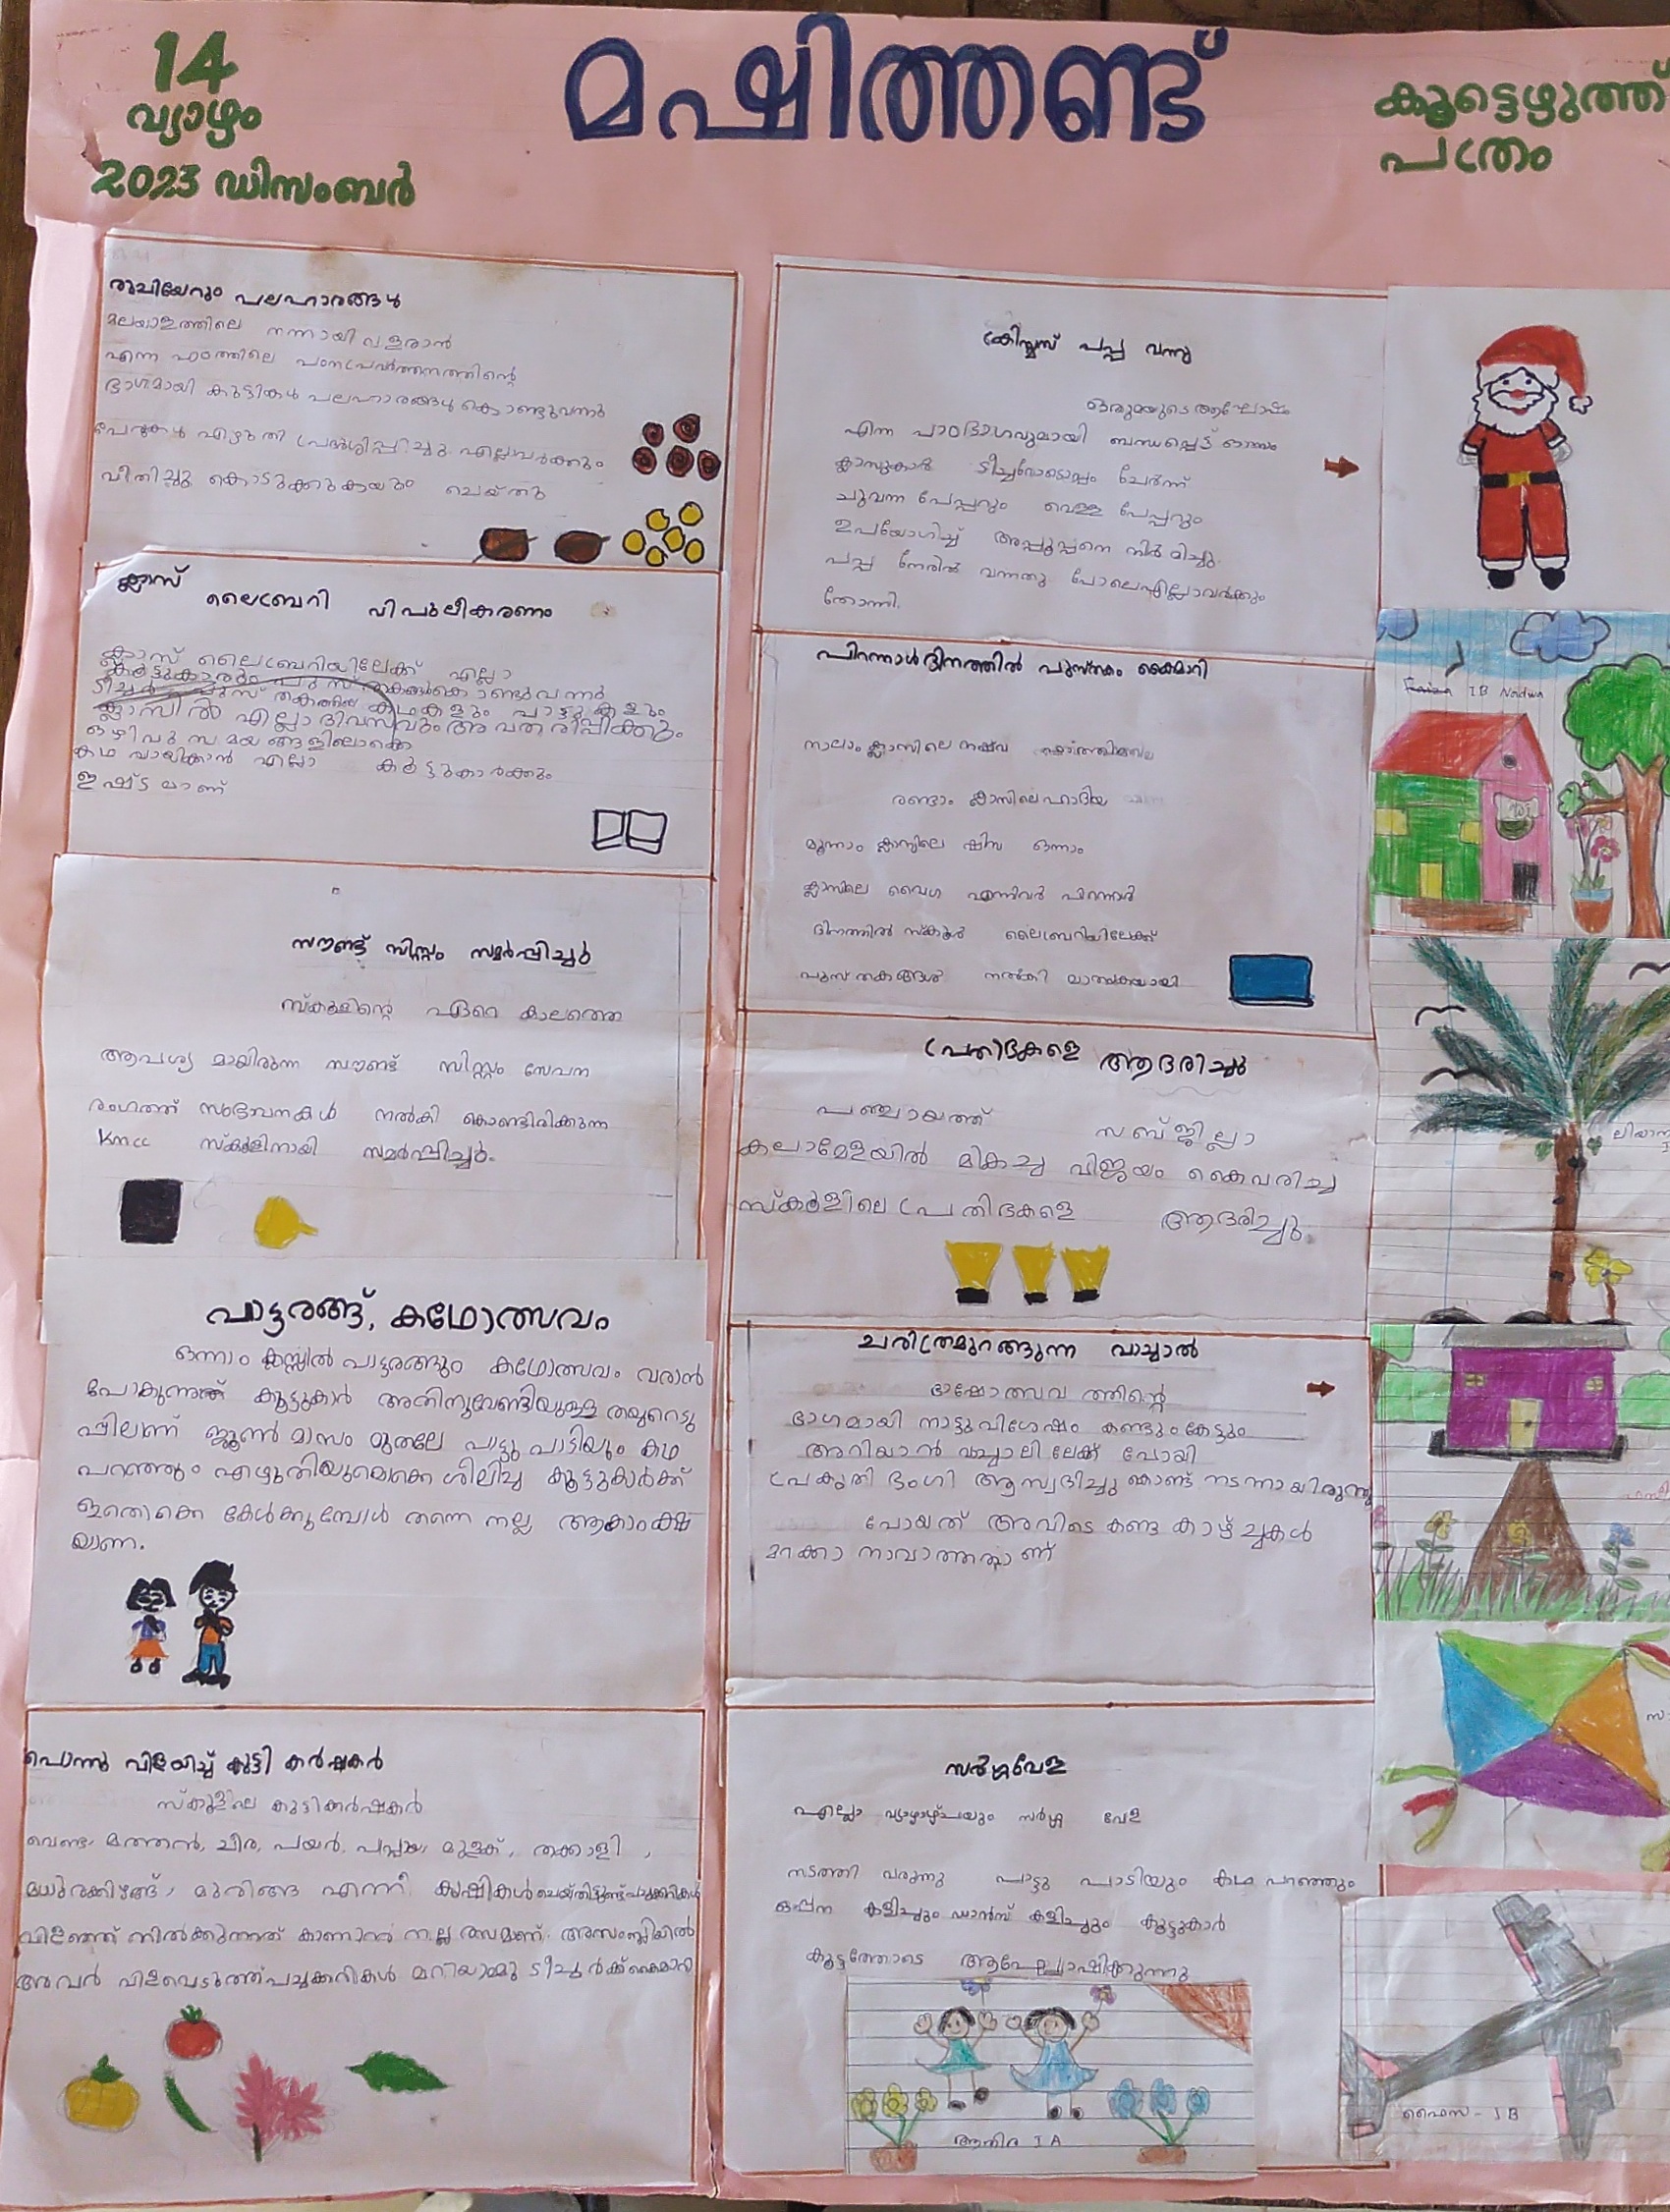 14
വ്യാഴം
2023 ഡിസംബർ
മഷിത്തണ്ട്
കൂട്ടെഴുത്ത്
പത്രം
രുചിയേറും പലഹാരങ്ങൾ
മലയാളത്തിലെ നന്നായി വളരാൻ
എന്ന പാഠത്തിലെ പഠനപ്രവർത്തനത്തിന്റെ
ഭാഗമായി കുട്ടികൾ പലഹാരങ്ങൾ കൊണ്ടുവന്നു
പേരുകൾ എഴുതി പ്രദർശിപ്പിച്ചു. എല്ലാവർക്കും
വീതിച്ചു കൊടുക്കുകയും ചെയ്തു
ക്ലാസ്
ലൈബ്രറി വിപുലീകരണം
ക്ലാസ് ലൈബ്രറിയിലേക്ക് എല്ലാ
കൂട്ടുകാരും പുസ്തകങ്ങൾ കൊണ്ടുവന്നു
ടീച്ചർ പുസ്തകത്തിലെ കഥകളും പാട്ടുകളും
ക്ലാസിൽ എല്ലാ ദിവസവും അവതരിപ്പിക്കും
ഒഴിവു സമയങ്ങളിലൊക്കെ
കഥ വായിക്കാൻ എല്ലാ കൂട്ടുകാർക്കും
ഇഷ്ടമാണ്
സൗണ്ട് സിസ്റ്റം സമർപ്പിച്ചു
സ്കൂളിന്റെ ഏറെ കാലത്തെ
ആവശ്യ മായിരുന്ന സൗണ്ട് സിസ്റ്റം സേവന
രംഗത്ത് സംഭാവനകൾ നൽകി കൊണ്ടിരിക്കുന്ന
Kmcc സ്കൂളിനായി സമർപ്പിച്ചു.
പാട്ടരങ്ങ്, കഥോത്സവം
ഒന്നാം ക്ലസ്സിൽ പാട്ടരങ്ങും കഥോത്സവം വരാൻ
പോകുന്നത് കൂട്ടുകാർ അതിനുവേണ്ടിയുള്ള തയുറെടു
പ്പിലാണ് ജൂൺ മാസം മുതലേ പാട്ടു പാടിയും കഥ
പറഞ്ഞും എഴുതിയുമൊക്കെ ശീലിച്ച കൂട്ടുകാർക്ക്
ഇതൊക്കെ കേൾക്കുമ്പോൾ തന്നെ നല്ല ആകാംക്ഷ
യാണ.
പൊന്നു വിളയിച്ച് കുട്ടി കർഷകർ
സ്കൂളിലെ കുട്ടികർഷകർ
വെണ്ട, മത്തൻ, ചീര, പയർ, പപ്പായ, മുളക്, തക്കാളി,
മധുരക്കിഴങ്ങ്, മുരിങ്ങ എന്നീ കൃഷികൾ ചെയ്തിട്ടുണ്ട് പച്ചക്കറികൾ
വിളഞ്ഞ് നിൽക്കുന്നത് കാണാൻ നല്ല രസമാണ്. അസംബ്ലിയിൽ
അവർ വിളവെടുത്ത് പച്ചക്കറികൾ മറിയാമ്മു ടീച്ചർക്ക് കൈമാറി
ക്രിസ്മസ് പപ്പ വന്നു
ഒരുമയുടെ ആഘോഷം
എന്ന പാഠഭാഗവുമായി ബന്ധപ്പെട്ട് ഒന്നാം
ക്ലാസുകാർ ടീച്ചറോടൊപ്പം ചേർന്ന്
ചുവന്ന പേപ്പറും വെള്ള പേപ്പറും
ഉപയോഗിച്ച് അപ്പൂപ്പനെ നിർമിച്ചു.
പപ്പ നേരിൽ വന്നതു പോലെഎല്ലാവർക്കും
തോന്നി.
പിറന്നാൾ ദിനത്തിൽ പുസ്തകം കൈമാറി
നാലാം ക്ലാസിലെ നഷ്വ
രണ്ടാം ക്ലാസിലെ ഹാദിയ
മൂന്നാം ക്ലാസിലെ ഷിസ ഒന്നാം
ക്ലാസിലെ വൈഗ എന്നിവർ പിറന്നാൾ
ദിനത്തിൽ സ്കൂൾ ലൈബ്രറിയിലേക്ക്
പുസ്തകങ്ങൾ നൽകി മാതൃകയായി
പ്രതിഭകളെ ആദരിച്ചു
പഞ്ചായത്ത് സബ്ജില്ലാ
കലാമേളയിൽ മികച്ച വിജയം കൈവരിച്ച
സ്കൂളിലെ പ്രതിഭകളെ ആദരിച്ചു.
ചരിത്രമുറങ്ങുന്ന വാച്ചാൽ
ഭാഷോത്സവ ത്തിന്റെ
ഭാഗമായി നാട്ടുവിശേഷം കണ്ടും കേട്ടും
അറിയാൻ വച്ചാലി ലേക്ക് പോയി
പ്രകൃതി ഭംഗി ആസ്വദിച്ചു കൊണ്ട് നടന്നായിരുന്നു
പോയത് അവിടെ കണ്ട കാഴ്ച്ചകൾ
മറക്കാ നാവാത്തതാണ്
സർഗ്ഗവേള
എല്ലാ വ്യാഴാഴ്ചയും സർഗ്ഗ വേള
നടത്തി വരുന്നു പാട്ടു പാടിയും കഥ പറഞ്ഞും
ഒപ്പന കളിച്ചും ഡാൻസ് കളിച്ചും കൂട്ടുകാർ
കൂട്ടത്തോടെ ആഘോഷിക്കുന്നു
I B Nadwa
ഫൈസ - I B
I A